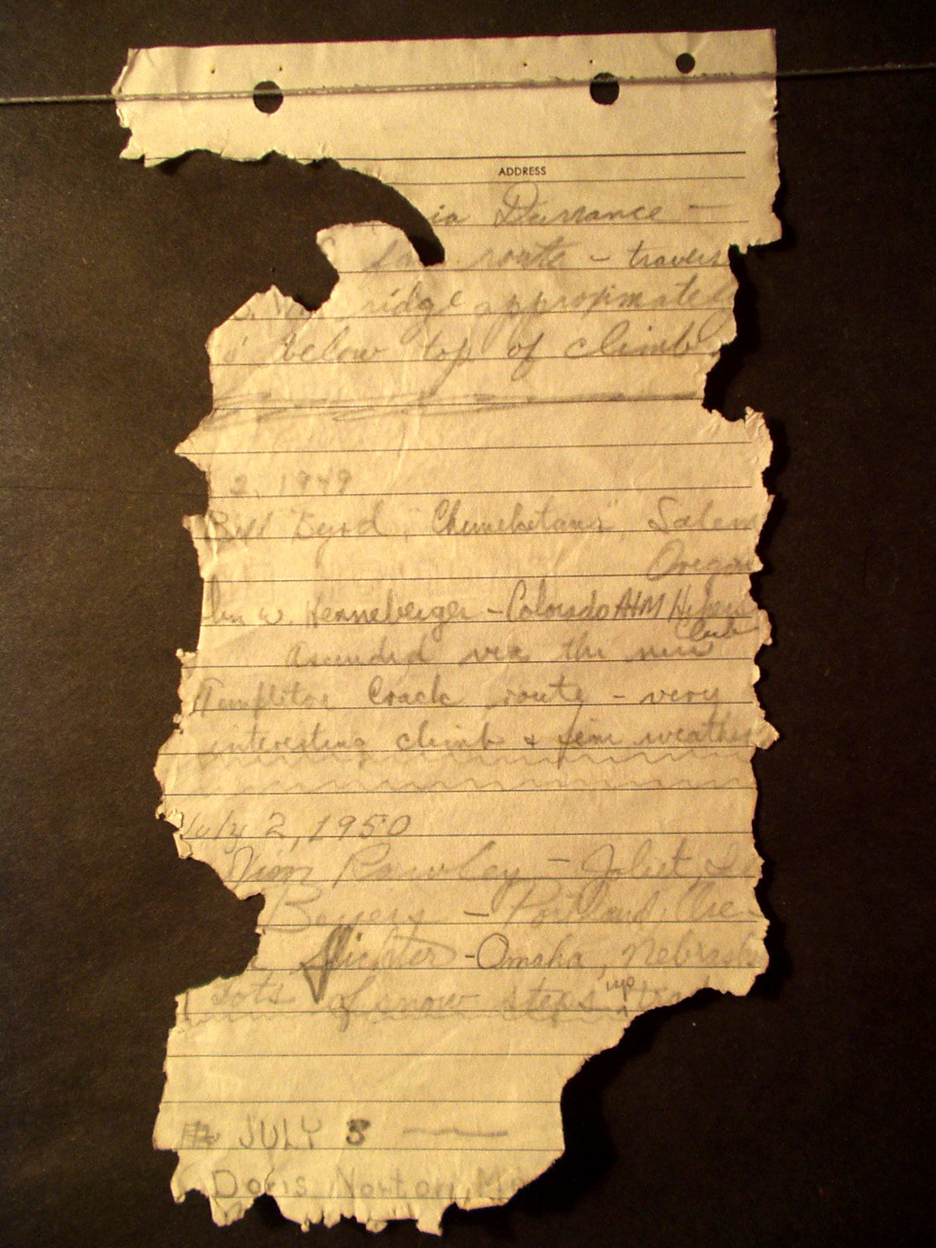 ADDRESS
via Durrance —
route — travers
ridge approximately
below top of climb.
2, 1949
Bill Byrd, "Chemeketans", Salem
Oregon
w. Henneberger - Colorado A+M Hikers
Club
Ascended via the new
Templeton Crack route - very
interesting climb & fine weather
July 2, 1950
Rawley - Joliet, Il
- Portland, Ore.
- Omaha, Nebraska
Lots of snow steps up
JULY 3
Doris Norton, M